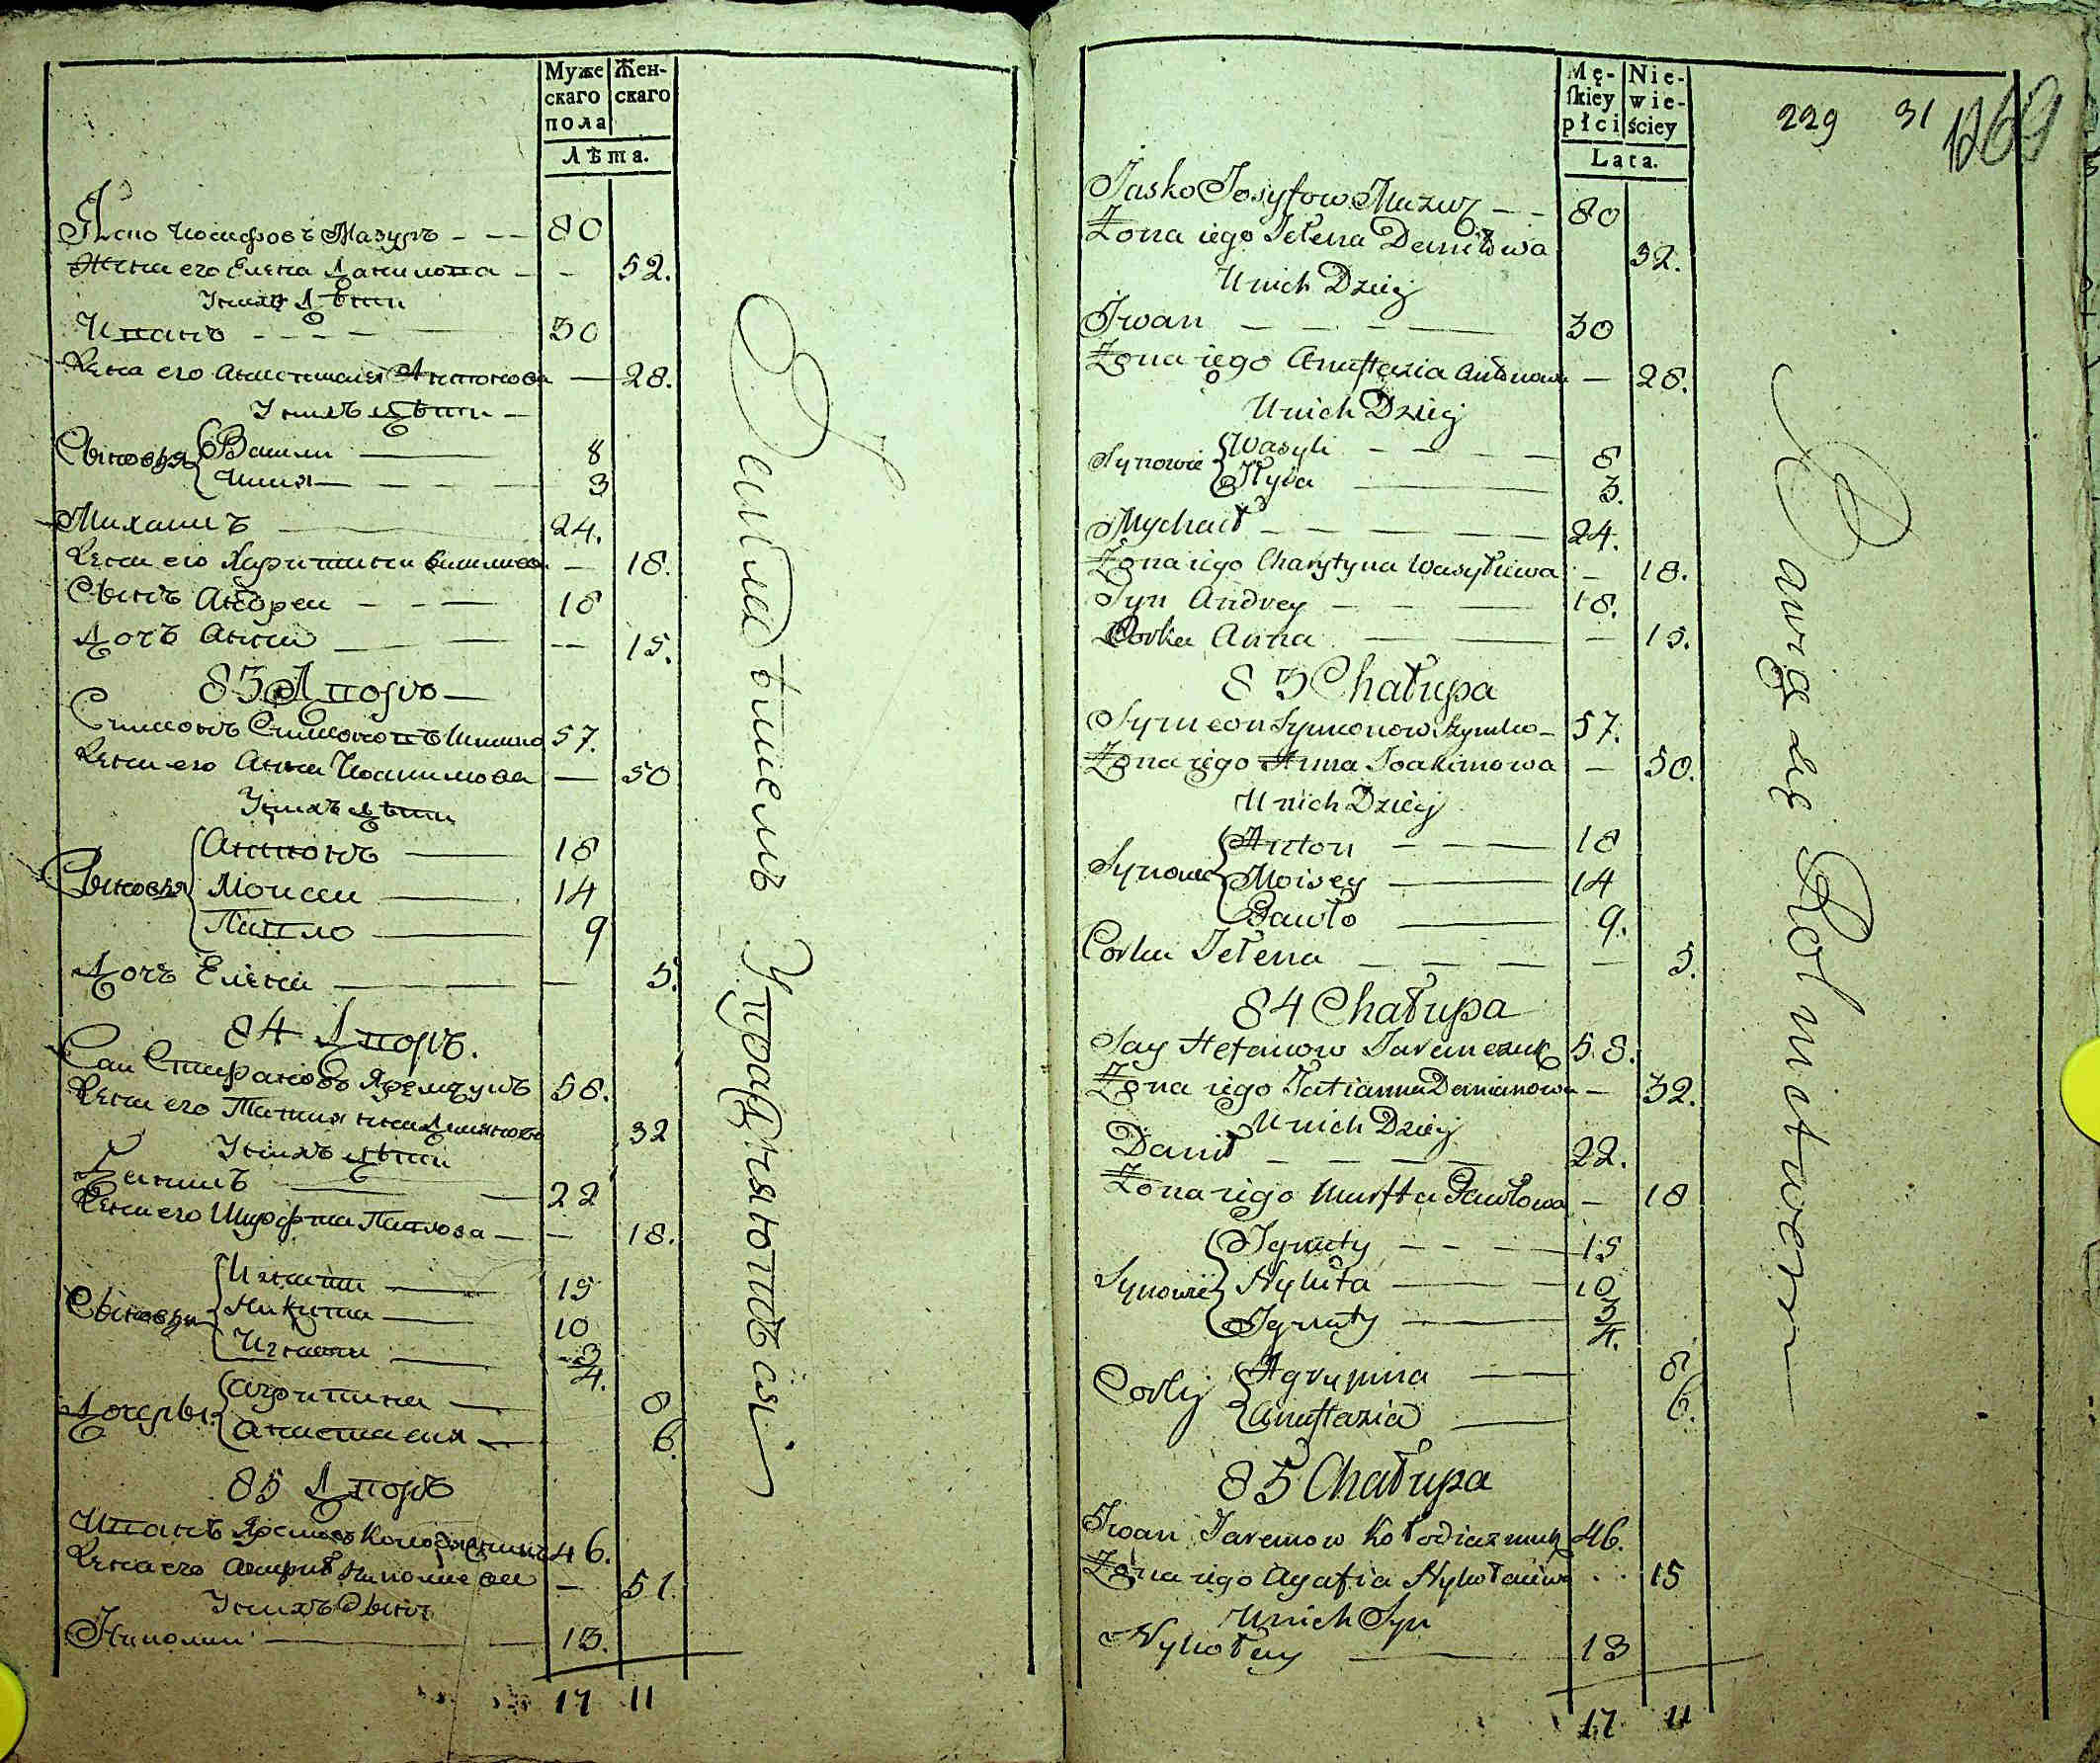 Муже
скаго
пола
Жен-
скаго
Лѣта.
Яско Иосифовъ Мазуръ - - - 80
Жена его Елена Данилова - - 52.
У нихъ дѣти
Иванъ - - - - 30
Жена его Анастасия Антонова — 28.
У нихъ дѣти —
Сыновья { Васили — 8
Илия — - - - 3
Михаилъ — 24.
Жена его Харитина Василиова — 18.
Сынъ Андреи - - — 18
Дочь Анна — — -- 15.
83 Дворъ —
Симеонъ Симоновъ Шимко 57.
Жена его Анна Иоакимова — 50
У нихъ дѣти
Сыновья { Антонъ — 18
Моисеи — 14
Павло — 9
Дочь Елена — — 5.
84 Дворъ.
Сай Стефановъ Яремчукъ 58.
Жена его Татияна Демянова 32
У нихъ дѣти
Данилъ — 22
Жена его Марфта Павлова — — 18.
Сыновья { Игнати — 15
Никита — 10
Игнати — 3/4.
Дочеры { Агрипина — 8
Анастасия — 6.
85 Дворъ
Иванъ Яремовъ Колодяжникъ 46.
Жена его Агафия Николаева — 51.
У нихъ Сынъ
Николаи — 13.
17 11
Землед ѣлиемъ Упражняютъ ся
Mę-
ſkiey
płci
Nie-
wie-
ściey
Lata.
229 31
1269
Jasko Josyfow Mazur - - 80
Żona iego Jełena Daniłowa 32.
U nich Dzieci
Iwan — - - — 30
Żona iego Anastazia Antonowa — 28.
U nich Dzieci
Synowie { Wasyli - - - — 8
Ilyia — 3.
Mychaił — - — — 24.
Żona iego Charytyna Wasyliewa - 18.
Syn Andrey — - — 18.
Corka Anna — — - 15.
83 Chałupa
Symeon Symonow Szymko - 57.
Żona iego Anna Joakimowa — 50.
U nich Dzieci
Synowie { Anton - - — 18
Moisey — 14
Pawło — 9.
Corka Jełena — — — — 5.
84 Chałupa
Say Stefanow Jaremczuk 58.
Żona iego Tatianna Demianowa — 32.
U nich Dzieci
Danił — — — — 22.
Żona iego Marfta Pawłowa — 18
Synowie { Ignaty - - - — 15
Nykita — 10
Ignaty — 3/4.
Corki { Agrypina — 8
Anastazia — 6.
85 Chałupa
Iwan Jaremow Kołodiaznik 46.
Żona iego Agafia Nykołaiewa - - 15
U nich Syn
Nykołay — 13
17 11
Bawią się Rolnictwem